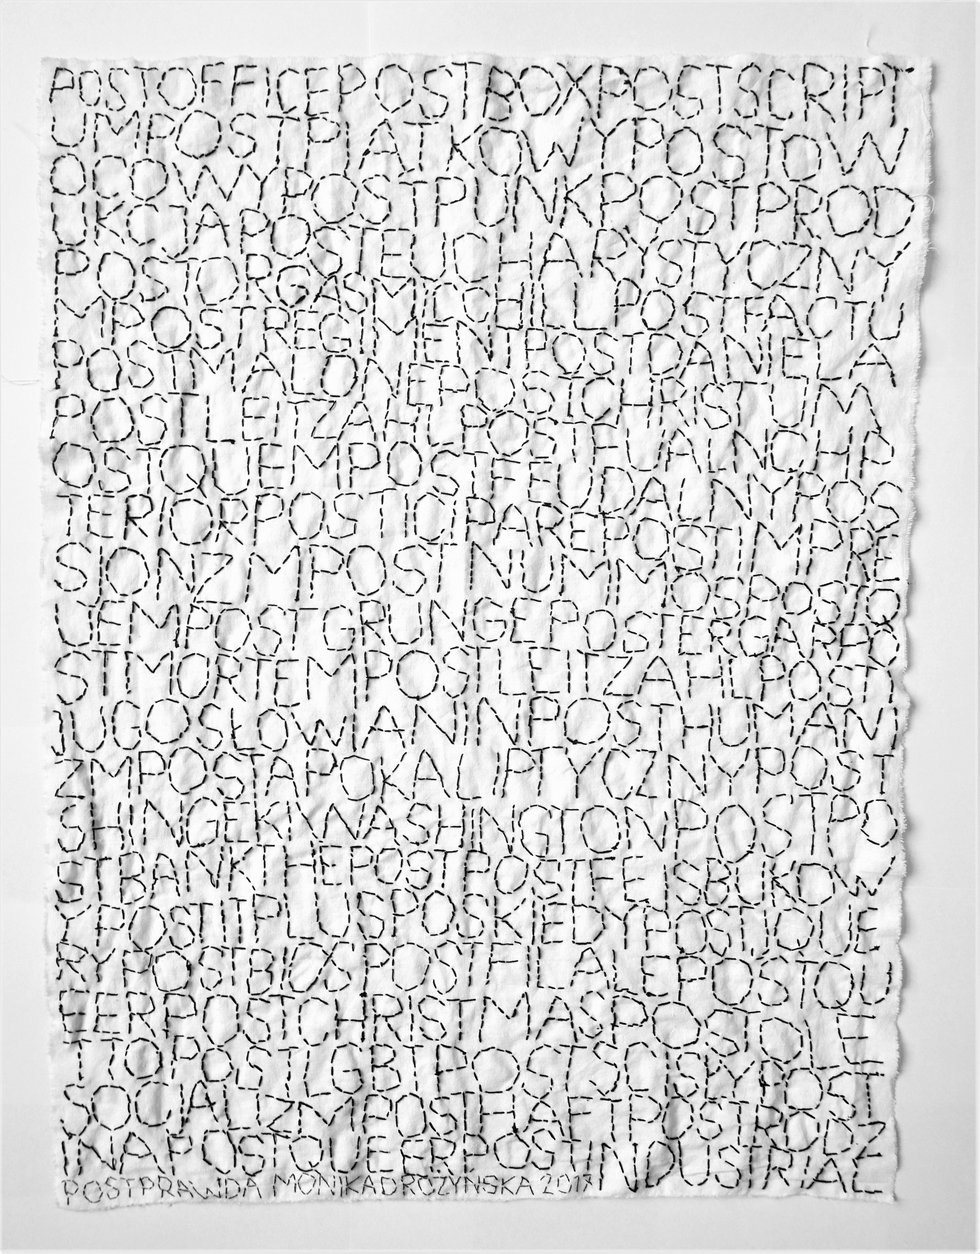 POSTOFFICEPOSTBOXPOSTSCRIPT
UMPOSTPIĄTKOWYPOSTOW
OCOWYPOSTPUNKPOSTPROD
UKCJAPOSTEUCHARYSTYCZNY
POSTORGASMICCHILLPOSTFACTU
MPOSTREGIMENTPOSTDANIELA
POSTMALONEPOSTCHRISTUM
POSTLEITZAHLPOSTEUANCHP
OSTQUEMPOSTFEUDALNYPOS
TERIORPPOSTICIPAREPOSTIMPRE
SIONIZMPOSTINUMMOSPOSTQ
UEMPOSTGRUNGEPOSTERGARPO
STMORTEMPOSTLEITZAHLPOST
JUGOSLOWIANINPOSTHUMANI
ZMPOSTAPOKALIPTYCZNYPOST
SHINGEKIWASHINGTONPOSTPO
STBANKTHEPOSTPOSTFEJSBUKOW
YPOSTITPLUSPOSKIEDYHOSTJQUE
RYPOSTBUXPOSTFILALEPOSTQU
EERPOSTCHRISTMASPOSTOLE
TTOPOSTLGBTPOSTSOSYPOST
SOCJALIZMPOSTHAFTPOSTRODZ
YNAPOSTQUEERPOSTINDUSTRIAL
POSTPRAWDA MONIKA DROZYNSKA 2017